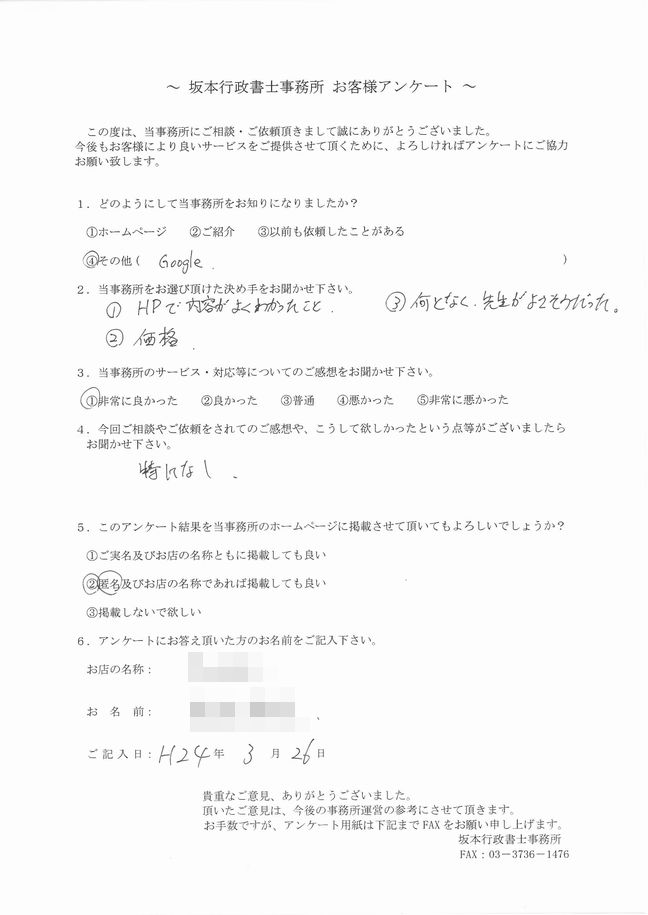 ～ 坂本行政書士事務所 お客様アンケート ～
この度は、当事務所にご相談・ご依頼頂きまして誠にありがとうございました。
今後もお客様により良いサービスをご提供させて頂くために、よろしければアンケートにご協力
お願い致します。
１．どのようにして当事務所をお知りになりましたか？
①ホームページ ②ご紹介 ③以前も依頼したことがある
④その他（ Google. ）
２．当事務所をお選び頂けた決め手をお聞かせ下さい。
① HPで内容がよくわかったこと. ③ 何となく、先生がよさそうだった。
② 価格.
３．当事務所のサービス・対応等についてのご感想をお聞かせ下さい。
①非常に良かった ②良かった ③普通 ④悪かった ⑤非常に悪かった
４．今回ご相談やご依頼をされてのご感想や、こうして欲しかったという点等がございましたら
お聞かせ下さい。
特になし、
５．このアンケート結果を当事務所のホームページに掲載させて頂いてもよろしいでしょうか？
①ご実名及びお店の名称ともに掲載しても良い
②匿名及びお店の名称であれば掲載しても良い
③掲載しないで欲しい
６．アンケートにお答え頂いた方のお名前をご記入下さい。
お店の名称：
お 名 前：
ご記入日：H24年 3 月 26日
貴重なご意見、ありがとうございました。
頂いたご意見は、今後の事務所運営の参考にさせて頂きます。
お手数ですが、アンケート用紙は下記まで FAX をお願い申し上げます。
坂本行政書士事務所
FAX：03－3736－1476